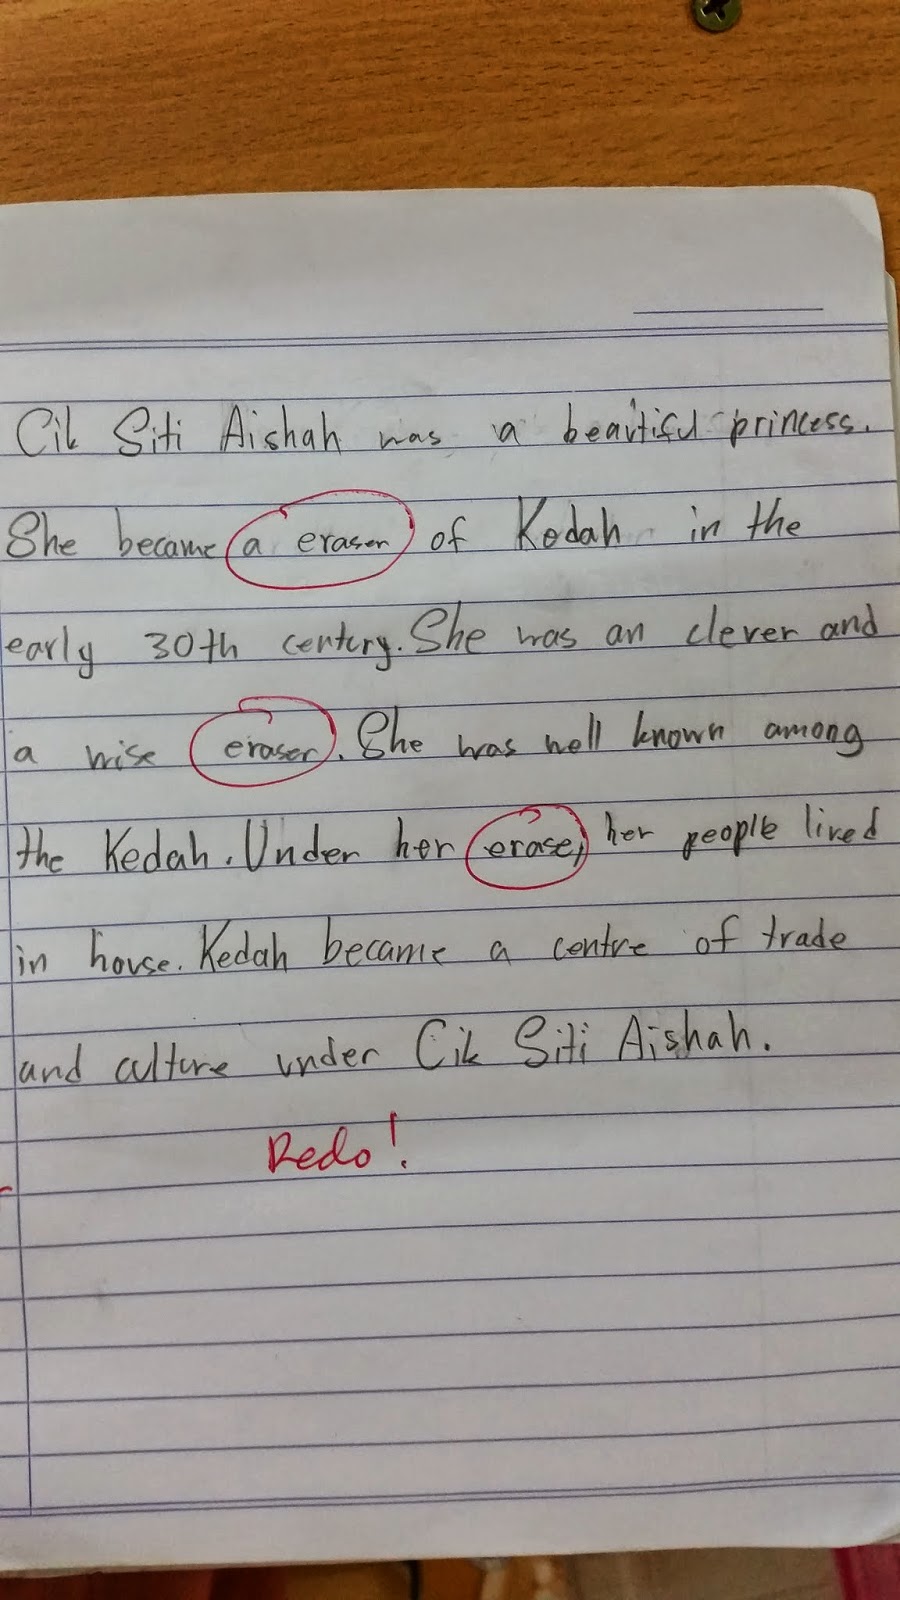 Cik Siti Aishah was a beautiful princess.
She became a eraser of Kedah in the
early 30th century. She was an clever and
a wise eraser. She was well known among
the Kedah. Under her erase, her people lived
in house. Kedah became a centre of trade
and culture under Cik Siti Aishah.
Redo!